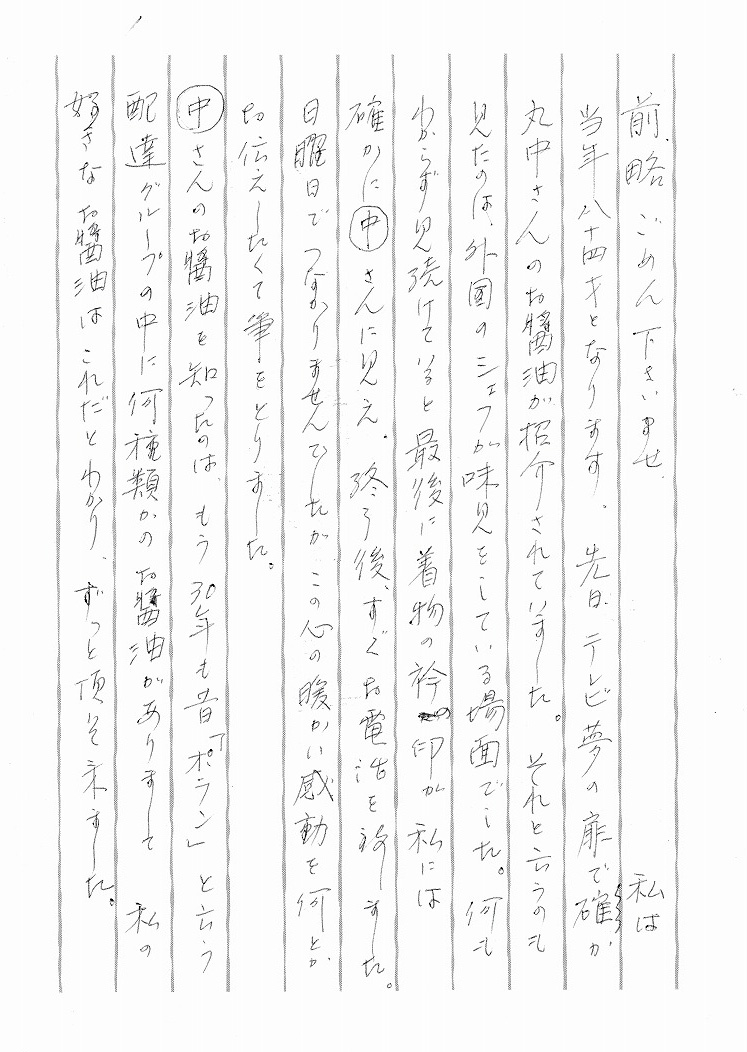 前略 ごめん下さいませ 私は
当年八十四才となります。先日、テレビ夢の扉で確か
丸中さんのお醤油が招介されていました。それと言うのも
見たのは、外国のシェフが味見をしている場面でした。何も
わからず見続けていると最後に着物の衿の印が私には
確かに㊥さんに見え、終了後、すぐお電話を致しました。
日曜日でつながりませんでしたがこの心の暖かい感動を何とか
お伝えしたくて筆をとりました。
㊥さんのお醤油を知ったのは、もう30年も昔「ポラン」と言う
配達グループの中に何種類かのお醤油がありまして 私の
好きなお醤油はこれだとわかり、ずっと頂いて来ました。